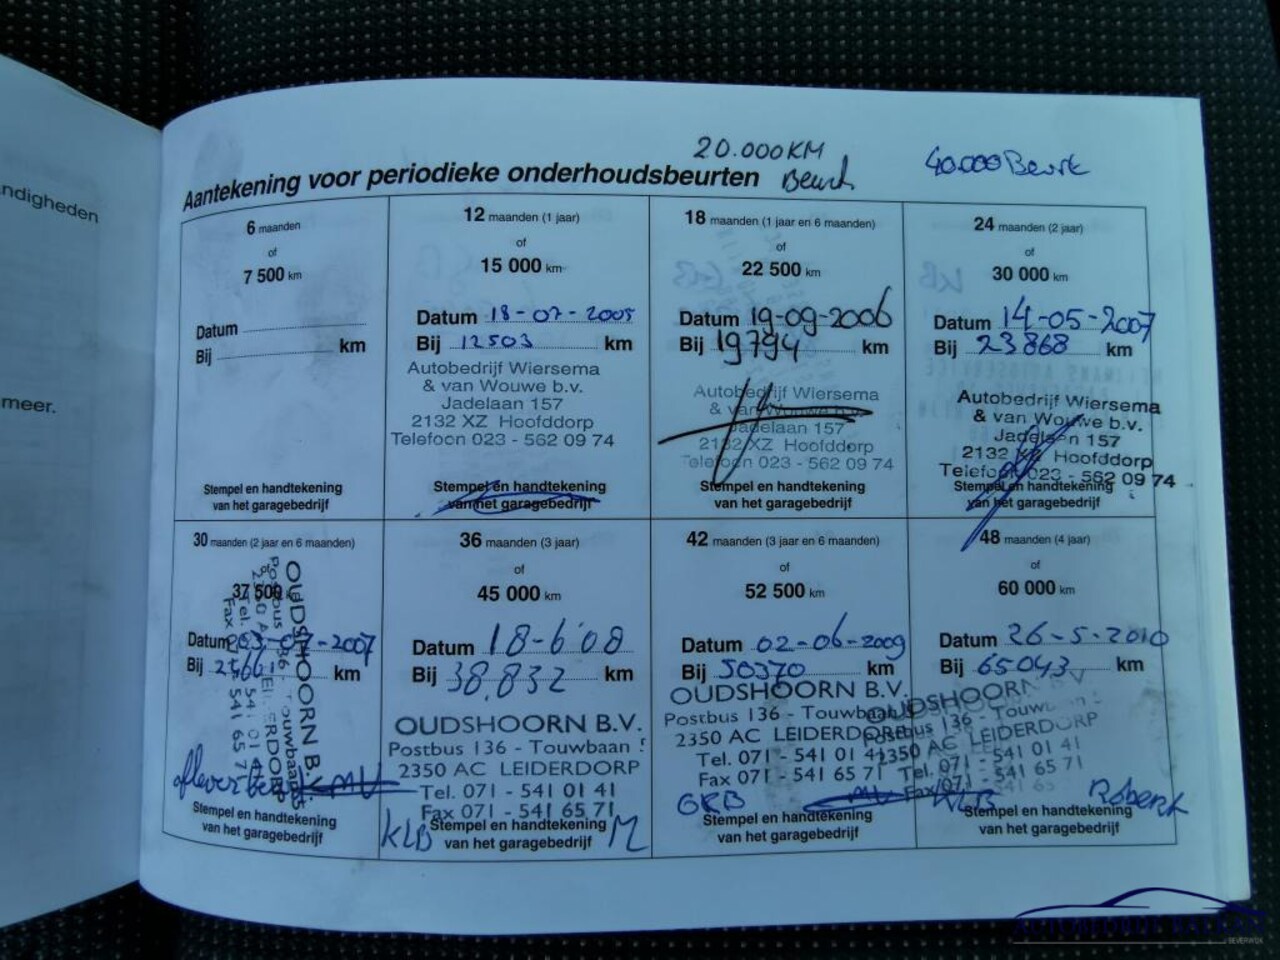 ndigheden
meer.
20.000KM
Beurt
40.000 Beurt
Aantekening voor periodieke onderhoudsbeurten
6 maanden
of
7 500 km
Datum
Bij km
Stempel en handtekening
van het garagebedrijf
12 maanden (1 jaar)
of
15 000 km
Datum 18-07-2005
Bij 12503 km
Autobedrijf Wiersema
& van Wouwe b.v.
Jadelaan 157
2132 XZ Hoofddorp
Telefoon 023 - 562 09 74
Stempel en handtekening
van het garagebedrijf
18 maanden (1 jaar en 6 maanden)
of
22 500 km
Datum 19-09-2006
Bij 19794 km
Autobedrijf Wiersema
& van Wouwe b.v.
Jadelaan 157
2132 XZ Hoofddorp
Telefoon 023 - 562 09 74
Stempel en handtekening
van het garagebedrijf
24 maanden (2 jaar)
of
30 000 km
Datum 14-05-2007
Bij 23868 km
Autobedrijf Wiersema
& van Wouwe b.v.
Jadelaan 157
2132 XZ Hoofddorp
Telefoon 023 - 562 09 74
Stempel en handtekening
van het garagebedrijf
30 maanden (2 jaar en 6 maanden)
of
37 500
Datum 03-07-2007
Bij km
OUDSHOORN B.V.
Stempel en handtekening
van het garagebedrijf
36 maanden (3 jaar)
of
45 000 km
Datum 18-6'08
Bij 38.832 km
OUDSHOORN B.V.
Postbus 136 - Touwbaan
2350 AC LEIDERDORP
Tel. 071 - 541 01 41
Fax 071 - 541 65 71
KLB Stempel en handtekening M
van het garagebedrijf
42 maanden (3 jaar en 6 maanden)
of
52 500 km
Datum 02-06-2009
Bij 50370 km
OUDSHOORN B.V.
Postbus 136 - Touwbaan
2350 AC LEIDERDORP
Tel. 071 - 541 01 41
Fax 071 - 541 65 71
GRB
Stempel en handtekening
van het garagebedrijf
48 maanden (4 jaar)
of
60 000 km
Datum 26-5-2010
Bij 65043 km
OUDSHOORN
Postbus 136 - Touwbaan
2350 AC LEIDERDORP
Tel. 071 - 541 01 41
Fax 071 - 541 65 71
KLB Robert
Stempel en handtekening
van het garagebedrijf
BEVERWIJK